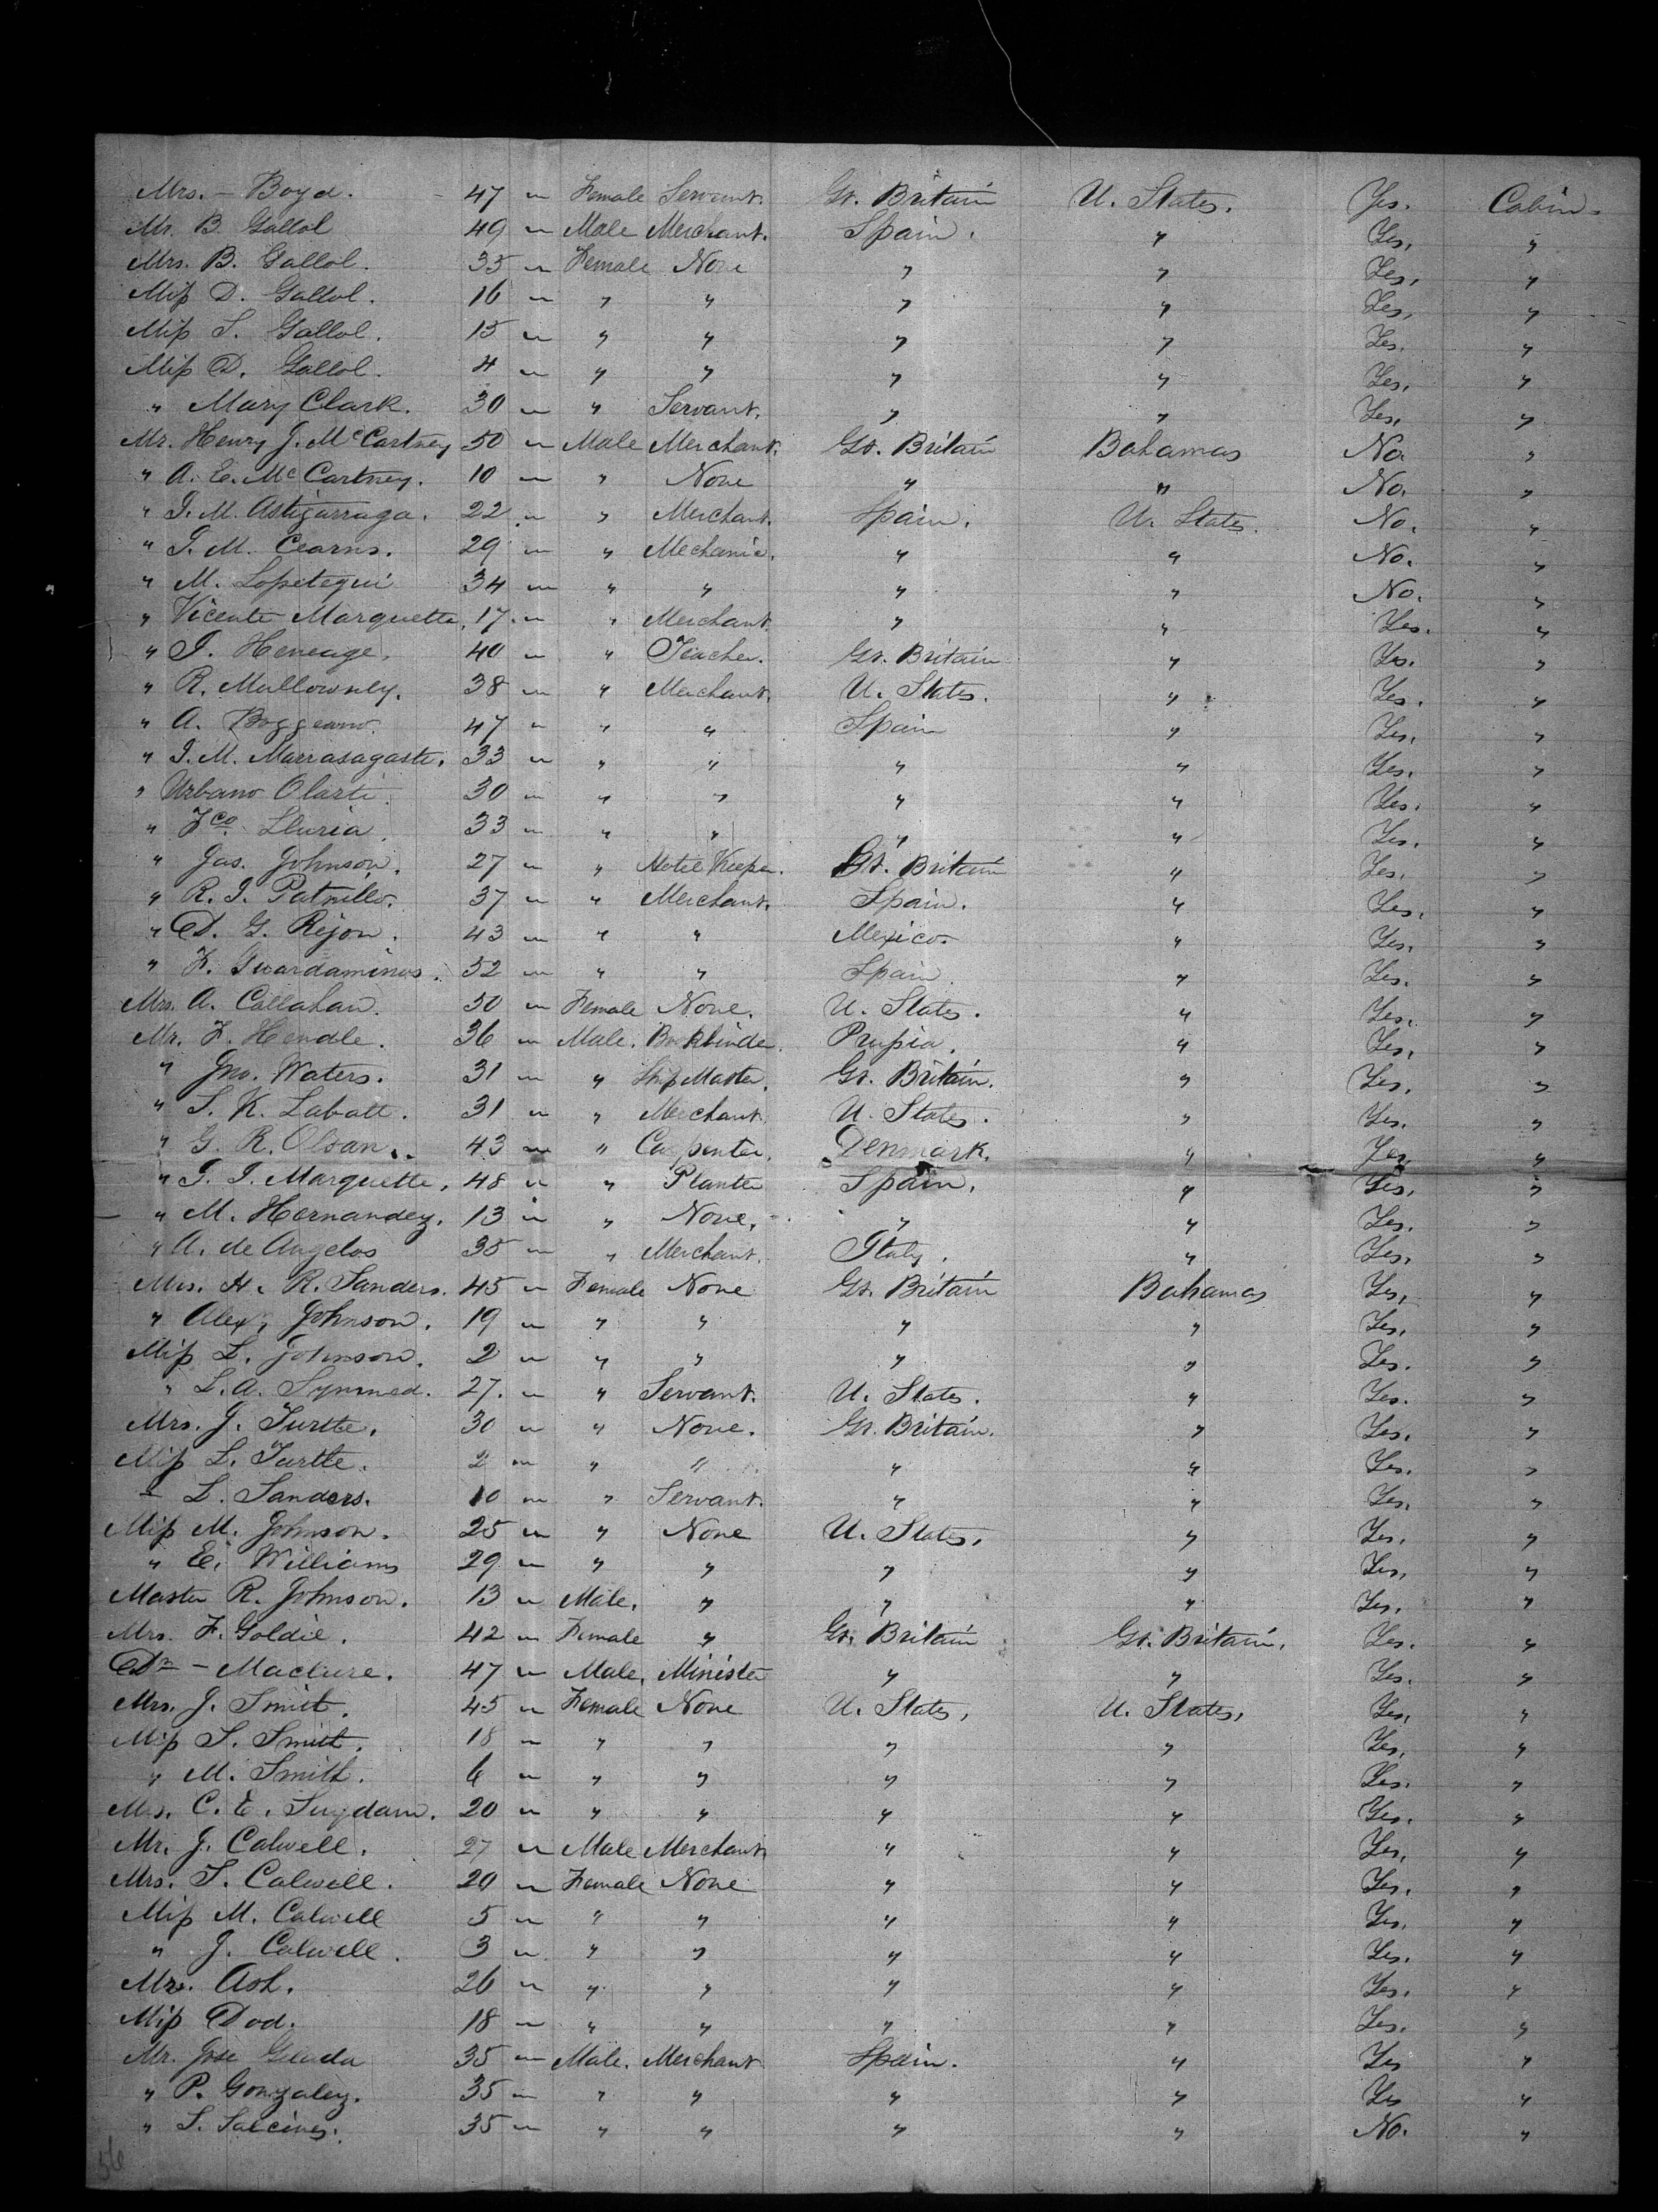 Mrs. - Boyd. 47 " Female Servant. Gt. Britain U. States. Yes. Cabin.
Mr. B. Gallol 49 " Male Merchant. Spain. " Yes. "
Mrs. B. Gallol. 35 " Female None " " Yes. "
Miss D. Gallol. 16 " " " " " Yes. "
Miss S. Gallol. 15 " " " " " Yes. "
Miss D. Gallol. 4 " " " " " Yes. "
" Mary Clark. 30 " " Servant. " " Yes. "
Mr. Henry J. McCartney 50 " Male Merchant. Gt. Britain Bahamas No. "
" A. E. McCartney. 10 " " None " " No. "
" J. M. Astigarraga. 22 " " Merchant. Spain. U. States. No. "
" J. M. Cearns. 29 " " Mechanic. " " No. "
" M. Lopetegui 34 " " " " " No. "
" Vicente Marquette. 17. " " Merchant. " " Yes. "
" J. Heneage. 40 " " Teacher. Gt. Britain " Yes. "
" R. Mullowney. 38 " " Merchant. U. States. " Yes. "
" A. Boggeano. 47 " " " Spain " Yes. "
" J. M. Marrasagaste. 33 " " " " " Yes. "
" Urbano Olarti. 30 " " " " " Yes. "
" Fco. Lluria. 33 " " " " " Yes. "
" Jas. Johnson. 27 " " Hotel Keeper. Gt. Britain " Yes. "
" R. J. Patrillo. 37 " " Merchant. Spain. " Yes. "
" D. G. Rejon. 43 " " " Mexico. " Yes. "
" F. Guardaminos. 52 " " " Spain " Yes. "
Mrs. A. Callahan. 50 " Female None. U. States. " Yes. "
Mr. F. Hendle. 36 " Male. Bookbinder. Prussia. " Yes. "
" Jno. Waters. 31 " " Ship Master. Gt. Britain. " Yes. "
" S. K. Labatt. 31 " " Merchant. U. States. " Yes. "
" G. R. Olsan. 43 " " Carpenter. Denmark. " Yes. "
" J. J. Marquette. 48 " " Planter Spain. " Yes. "
" M. Hernandez. 13 " " None. " " Yes. "
" A. de Angelos 35 " " Merchant. Italy. " Yes. "
Mrs. H. R. Sanders. 45 " Female None Gt. Britain Bahamas Yes. "
" Alex. Johnson. 19 " " " " " Yes. "
Miss L. Johnson. 2 " " " " " Yes. "
" L. A. Symmed. 27. " " Servant. U. States. " Yes. "
Mrs. J. Turtle. 30 " " None. Gt. Britain. " Yes. "
Miss L. Turtle. 2 " " " " " Yes. "
" L. Sanders. 10 " " Servant. " " Yes. "
Miss M. Johnson. 25 " " None U. States. " Yes. "
" E. Williams 29 " " " " " Yes. "
Master R. Johnson. 13 " Male. " " " Yes. "
Mrs. F. Goldie. 42 " Female " Gt. Britain Gt. Britain. Yes. "
Dr - Maclure. 47 " Male. Minister " " Yes. "
Mrs. J. Smith. 45 " Female None U. States. U. States. Yes. "
Miss S. Smith. 18 " " " " " Yes. "
" M. Smith. 6 " " " " " Yes. "
Mrs. C. E. Suydam. 20 " " " " " Yes. "
Mr. J. Calwell. 27 " Male Merchant. " " Yes. "
Mrs. S. Calwell. 20 " Female None " " Yes. "
Miss M. Calwell 5 " " " " " Yes. "
" J. Calwell. 3 " " " " " Yes. "
Mrs. Ash. 26 " " " " " Yes. "
Miss Dod. 18 " " " " " Yes. "
Mr. Jose Gelada 35 " Male. Merchant Spain. " Yes "
" P. Gonzalez. 35 " " " " " Yes "
" S. Salcines. 35 " " " " " No. "
56